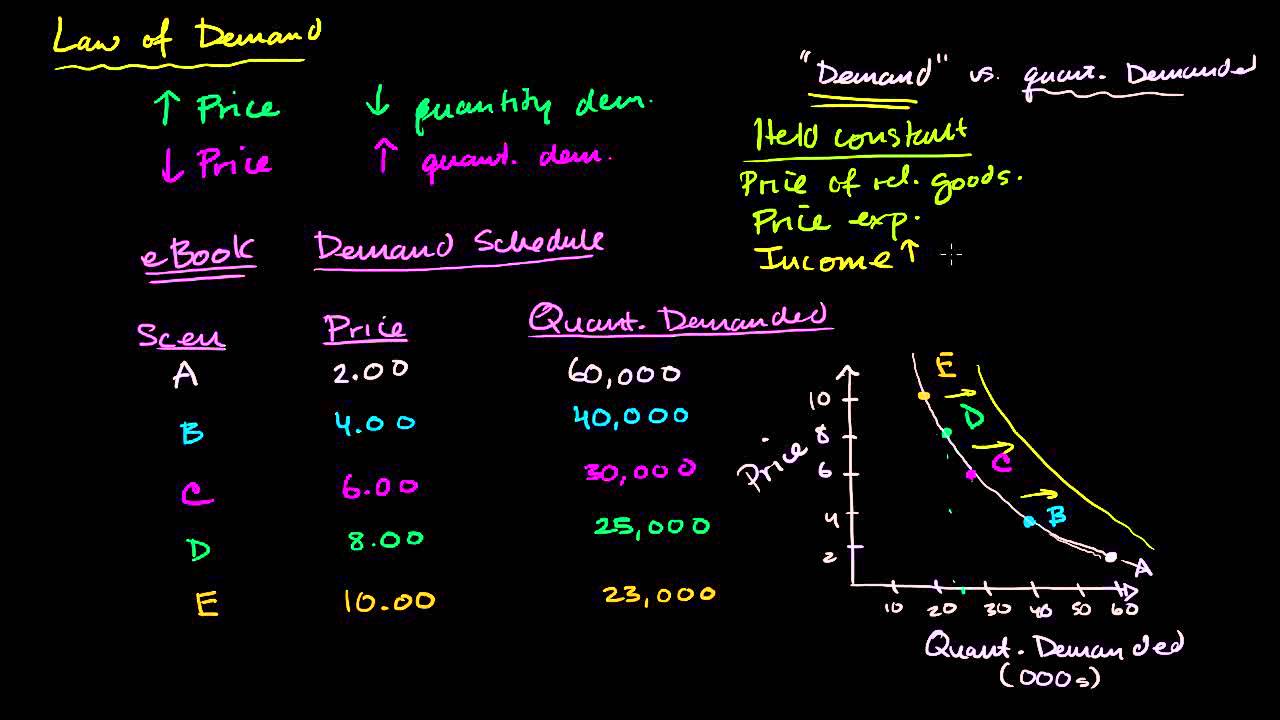 Law of Demand
↑ Price ↓ quantity dem.
↓ Price ↑ quant. dem.
"Demand" vs. quant. Demanded
Held constant
Price of rel. goods.
Price exp.
Income ↑
eBook Demand Schedule
Scen Price Quant. Demanded
A 2.00 60,000
B 4.00 40,000
C 6.00 30,000
D 8.00 25,000
E 10.00 23,000
E
D
C
B
A
Price
10
8
6
4
2
10 20 30 40 50 60
Quant. Demanded
(000s)